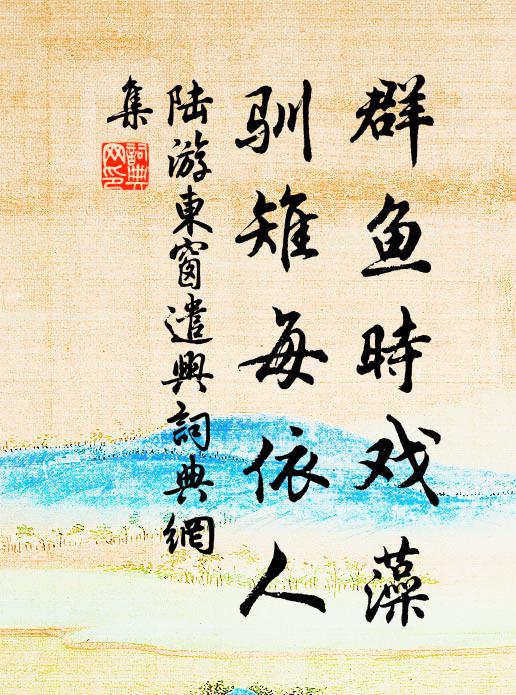 群鱼時戏藻
馴雉每依人
陆游東窗遣興詞典網
集
詞典网印